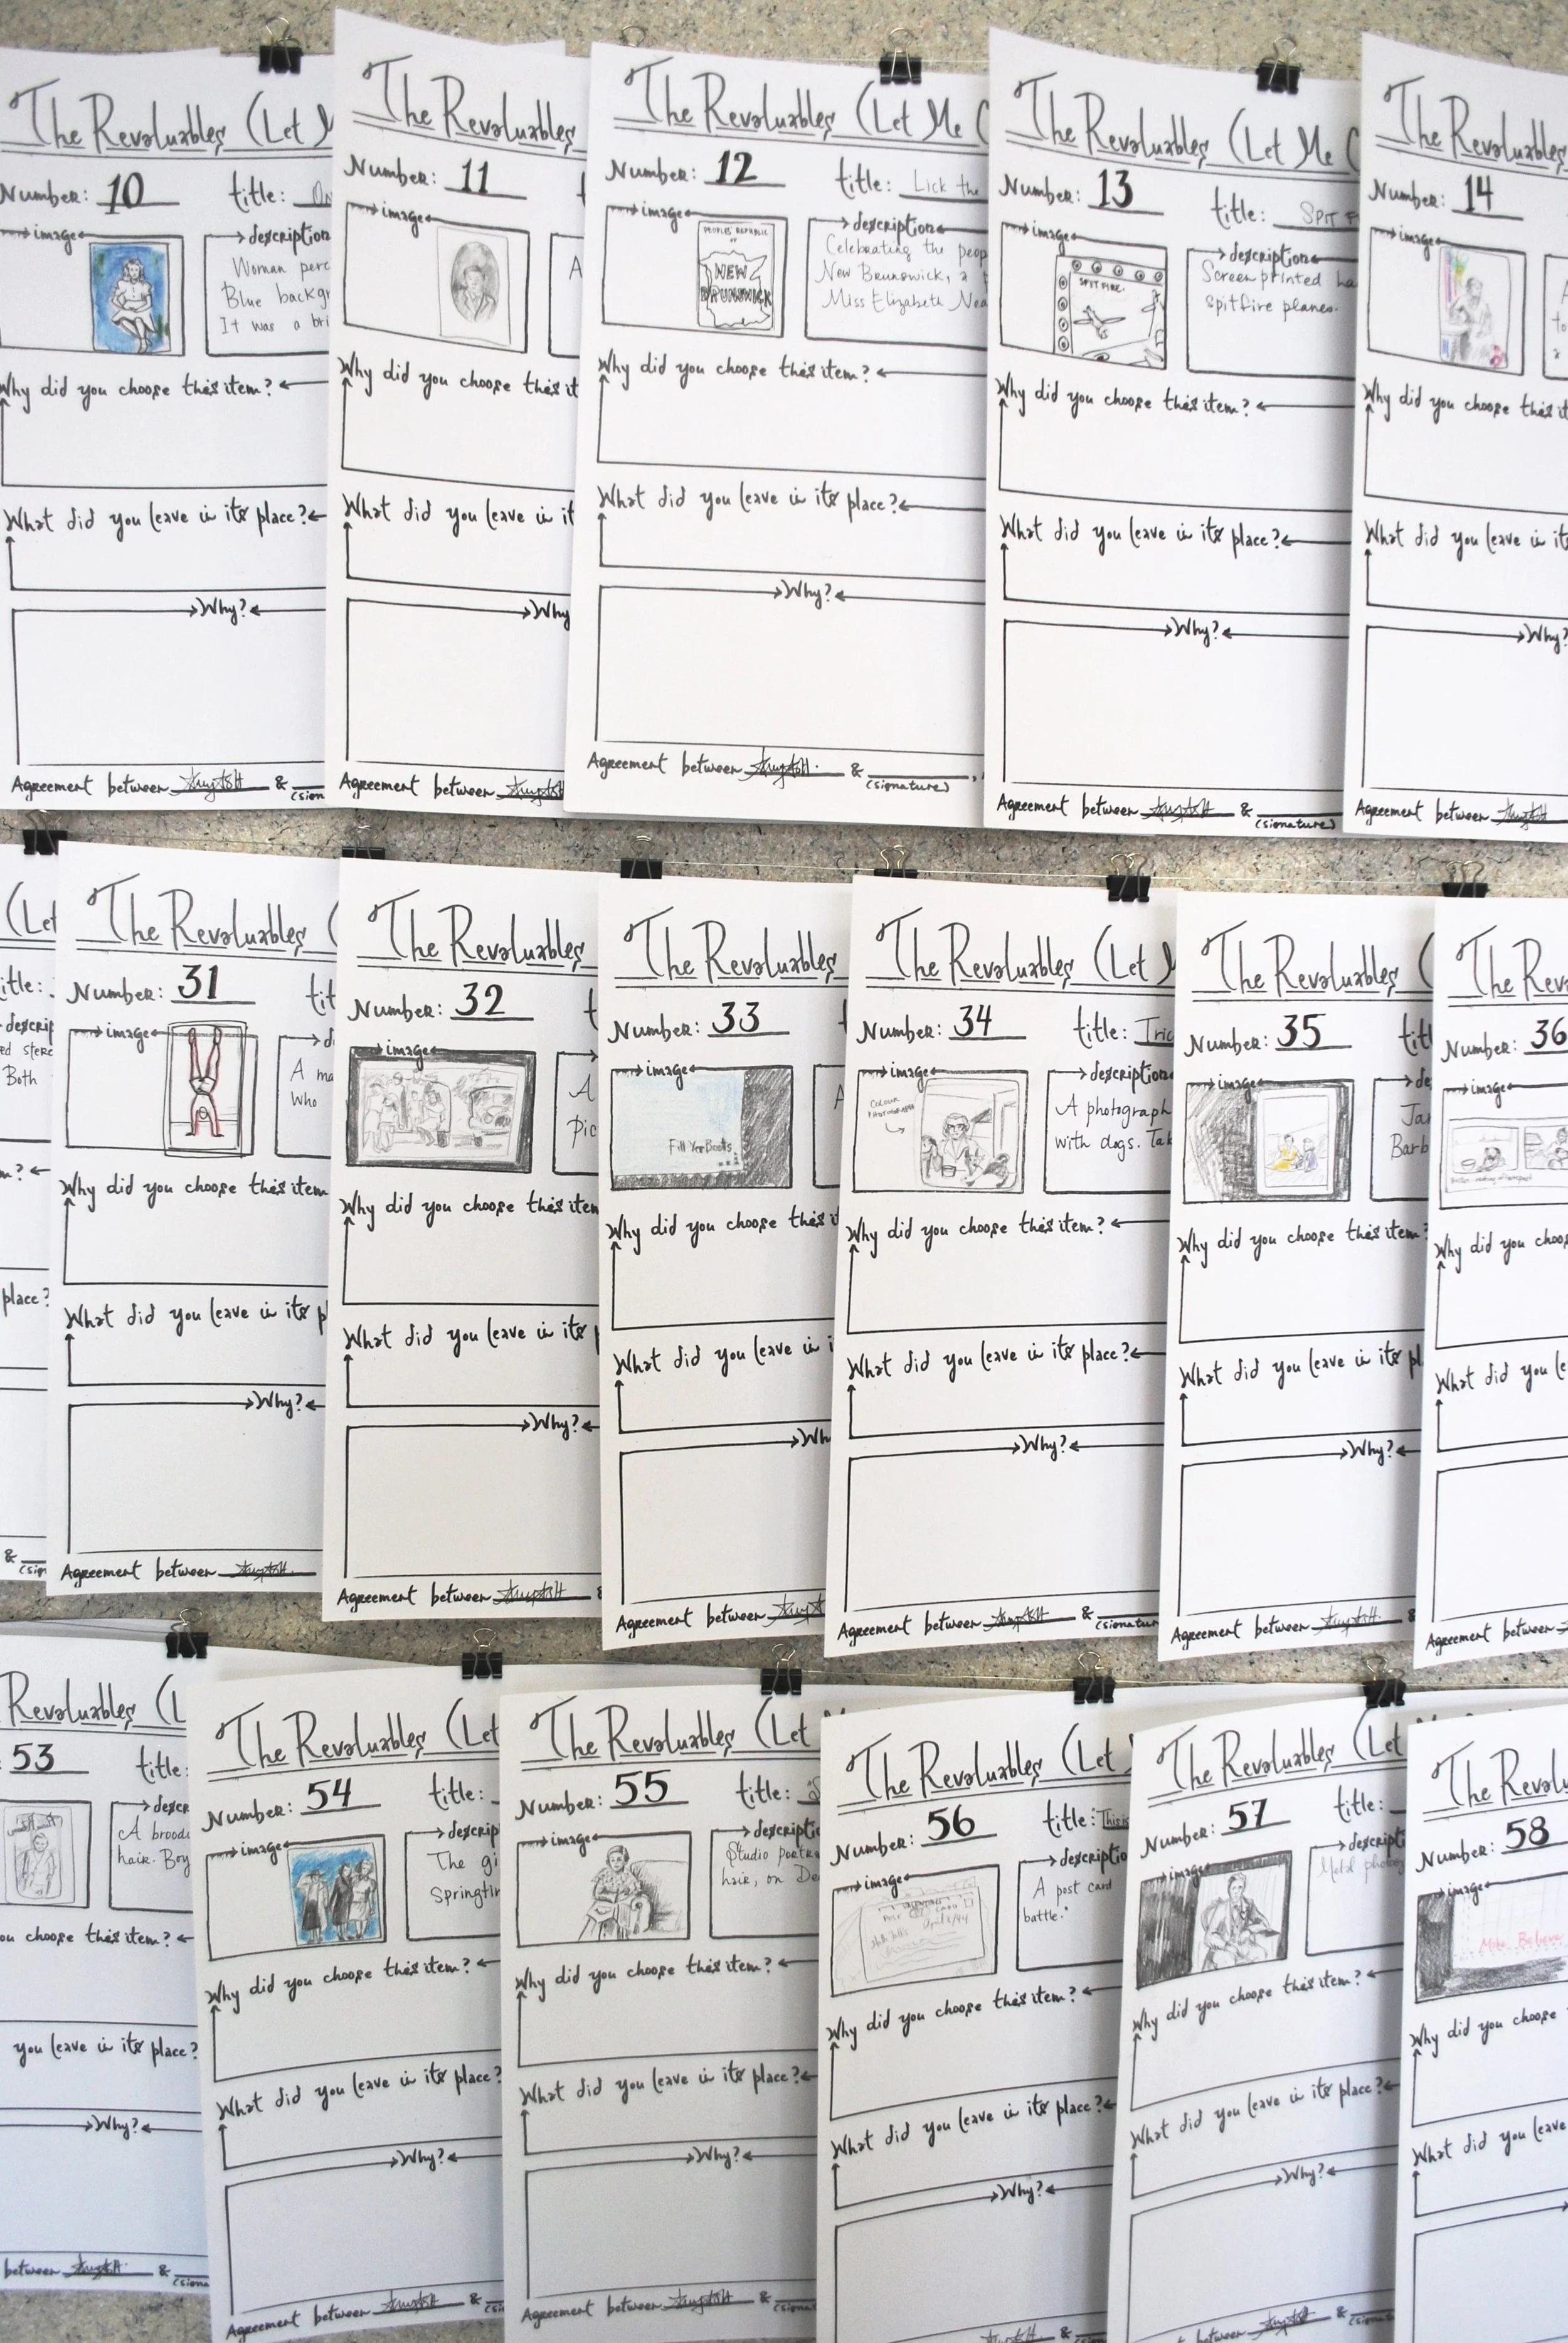 The Revaluables (Let M
Number: 10 title: On
image description
Woman perc
Blue backgr
It was a bri
Why did you choose this item?
What did you leave in its place?
Why?
Agreement between &
The Revaluables
Number: 11
image
A
Why did you choose this it
What did you leave in it
Why
Agreement between
The Revaluables (Let Me C
Number: 12 title: Lick the
image description
PEOPLES REPUBLIC
OF
NEW
BRUNSWICK
Celebrating the peop
New Brunswick, a
Miss Elizabeth Nea
Why did you choose this item?
What did you leave in its place?
Why?
Agreement between &
(signature)
The Revaluables (Let Me C
Number: 13 title: SPIT F
image description
SPITFIRE.
Screen printed ha
spitfire planes.
Why did you choose this item?
What did you leave in its place?
Why?
Agreement between &
(signature)
The Revaluables
Number: 14
image
A
to
a
Why did you choose this it
What did you leave in its
Why?
Agreement between
(Let
title:
descrip
ed sterc
Both
m?
place?
&
(sign
The Revaluables (
Number: 31 tit
image d
A ma
who
Why did you choose this item
What did you leave in its p
Why?
Agreement between
The Revaluables
Number: 32 t
image
A
pic
Why did you choose this item
What did you leave in its
Why?
Agreement between &
The Revaluables
Number: 33 t
image
Fill Yer Boots
A
Why did you choose this it
What did you leave in i
Wh
Agreement between
The Revaluables (Let M
Number: 34 title: Tric
image description
COLOUR
PHOTOGRAPH
A photograph
with dogs. Tak
Why did you choose this item?
What did you leave in its place?
Why?
Agreement between &
(signatur
The Revaluables (
Number: 35 titl
image de
Jar
Barb
Why did you choose this item?
What did you leave in its pl
Why?
Agreement between &
The Reva
Number: 36
image
Why did you choos
What did you le
Agreement between
Revaluables (L
53 title:
descr
A brood
hair. Boy
ou choose this item?
you leave in its place?
Why?
between &
(signa
The Revaluables (Let
Number: 54 title:
image descrip
The gi
Springtim
Why did you choose this item?
What did you leave in its place?
Why?
Agreement between &
(si
The Revaluables (Let
Number: 55 title:
image descripti
Studio portra
hair, on De
Why did you choose this item?
What did you leave in its place?
Why?
Agreement between &
(signa
The Revaluables (Let
Number: 56 title: This is
image description
April 8/44
A post card
battle."
Why did you choose this item?
What did you leave in its place?
Why?
&
The Revaluables (Let
Number: 57 title:
image descripti
Metal photog
Why did you choose this item?
What did you leave in its place?
Why?
between &
The Revalu
Number: 58
image
Make Believe
Why did you choose
What did you leave